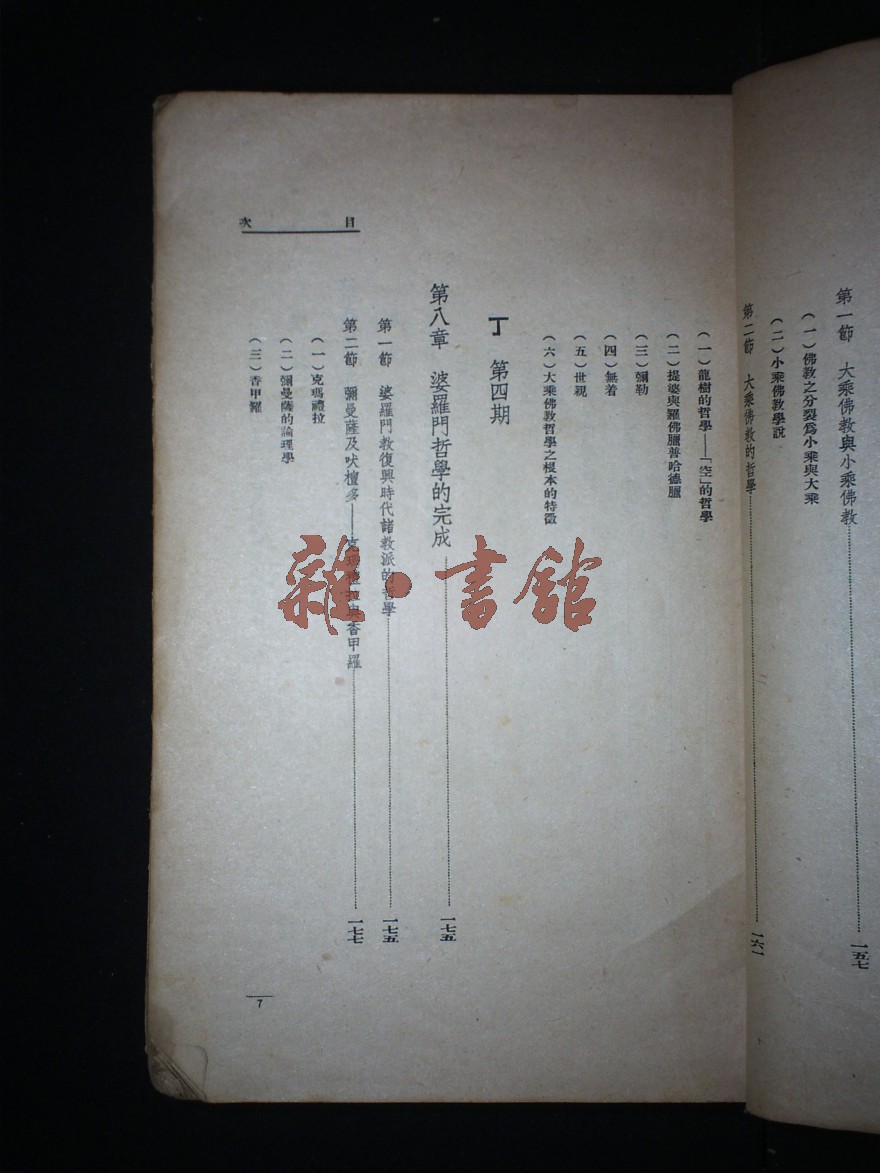 第一節　大乘佛教與小乘佛教……一五七
（一）佛教之分裂爲小乘與大乘
（二）小乘佛教學說
第二節　大乘佛教的哲學……一六一
目次
（一）龍樹的哲學——「空」的哲學
（二）提婆與羅佛臘普哈德臘
（三）彌勒
（四）無着
（五）世親
（六）大乘佛教哲學之根本的特徵
丁　第四期
第八章　婆羅門哲學的完成……一七五
第一節　婆羅門教復興時代諸教派的哲學……一七五
第二節　彌曼薩及吠檀多——克瑪禮拉與香甲羅……一七七
（一）克瑪禮拉
（二）彌曼薩的論理學
（三）香甲羅
7
雜·書館